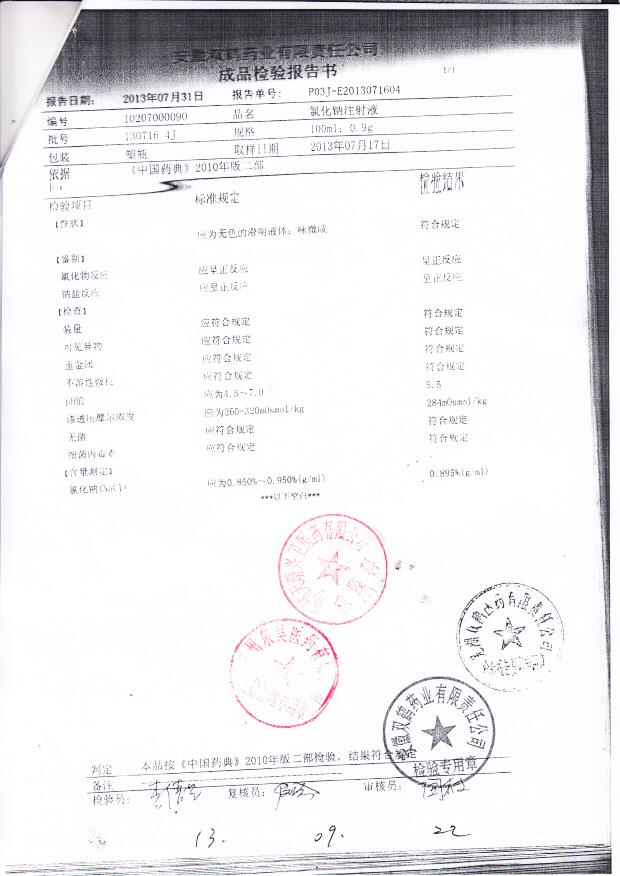 安徽双鹤药业有限责任公司
成品检验报告书
1/1
报告日期: 2013年07月31日 报告单号: P03J-E2013071604
编号 10207000090 品名 氯化钠注射液
批号 130716 4J 规格 100ml: 0.9g
包装 塑瓶 取样日期 2013年07月17日
依据 《中国药典》2010年版二部
检验项目 标准规定 检验结果
【性状】 应为无色的澄明液体; 味微咸 符合规定
【鉴别】
氯化物反应 应呈正反应 呈正反应
钠盐反应 应呈正反应 呈正反应
【检查】
装量 应符合规定 符合规定
可见异物 应符合规定 符合规定
重金属 应符合规定 符合规定
不溶性微粒 应符合规定 符合规定
pH值 应为4.5~7.0 5.5
渗透压摩尔浓度 应为260-320mOsmol/kg 284mOsmol/kg
无菌 应符合规定 符合规定
细菌内毒素 应符合规定 符合规定
【含量测定】
氯化钠(NaCl) 应为0.850%~0.950%(g/ml) 0.895%(g/ml)
***以下空白***
医药有限公司
州东吴医药有
有限责任公司
安徽双鹤药业有限责任公司
检验专用章
判定 本品按《中国药典》2010年版二部检验, 结果符合规定
备注
检验员: 复核员: 审核员:
13. 09. 22